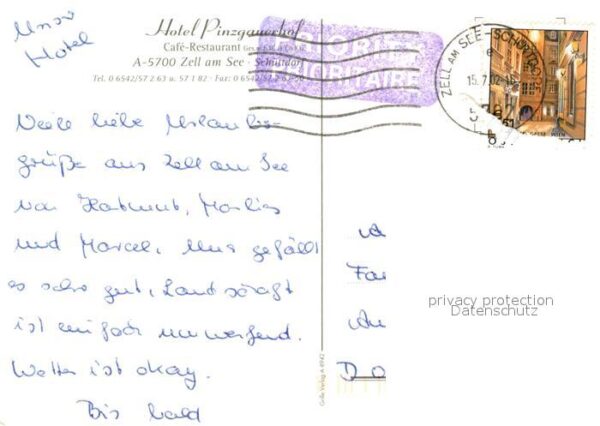 Unser
Hotel
Hotel Pinzgauerhof
Café-Restaurant
A-5700 Zell am See - Schüttdorf
Tel. 0 6542/57 2 63 u. 57 1 82 · Fax: 0 6542/57 2 63
PRIORITY
PRIORITAIRE
ZELL AM SEE - SCHÜTTDORF
15.7.02
Viele liebe Urlaubs-
grüße aus Zell am See
von Hartmut, Marlies
und Marcel. Uns gefällt
es sehr gut, Landschaft
ist einfach umwerfend.
Wetter ist okay.
Bis bald
Fa
D
privacy protection
Datenschutz